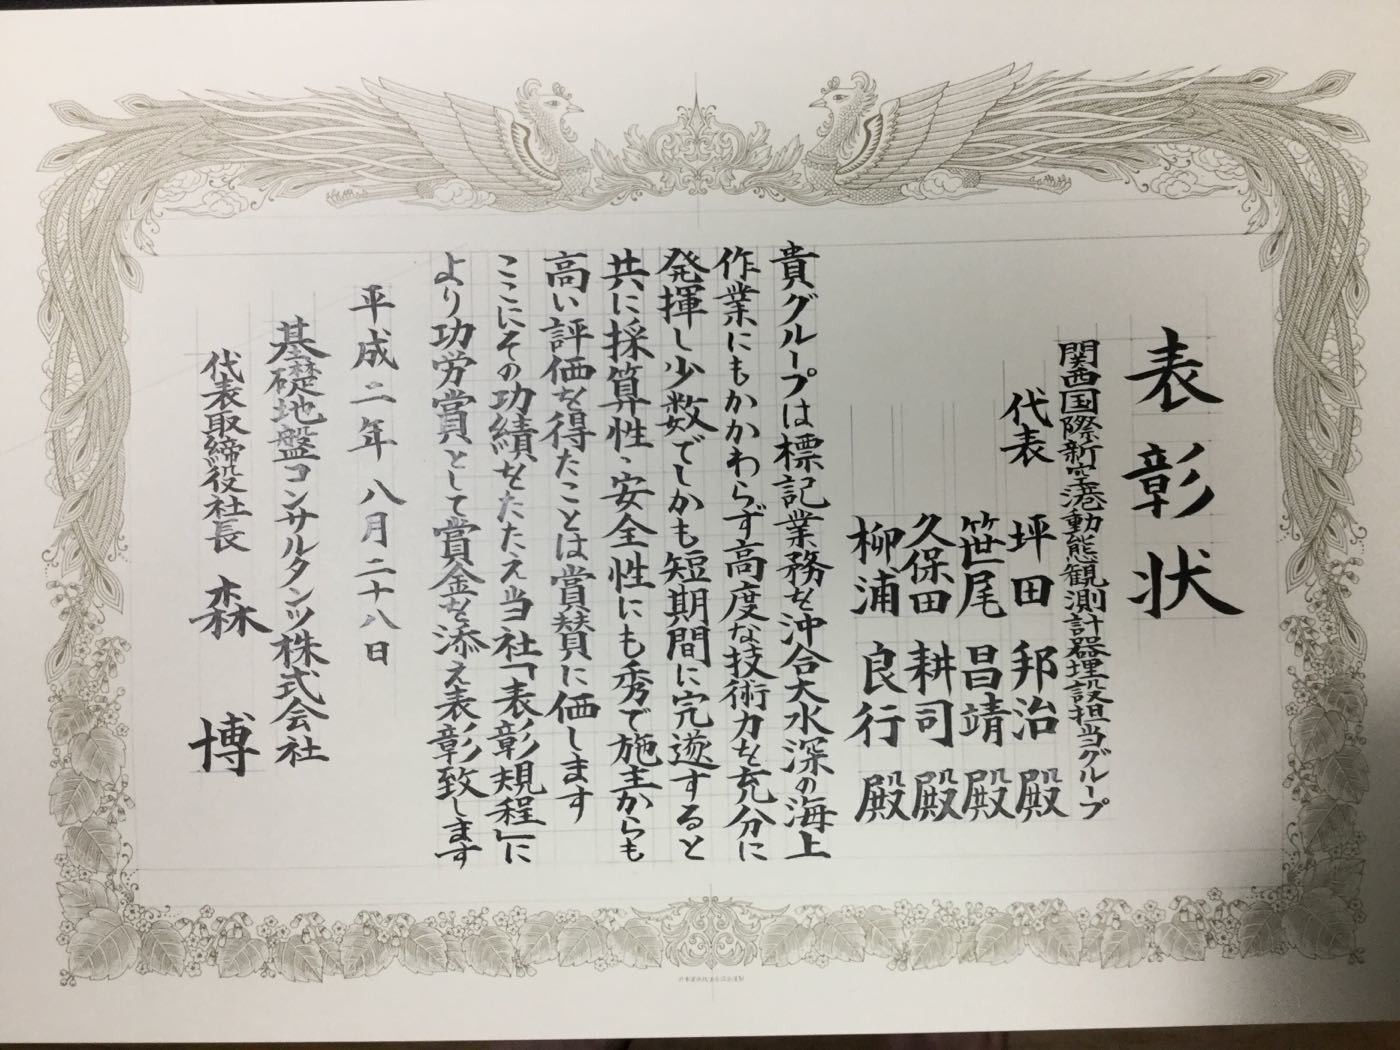 表彰状
関西国際新空港動態観測計器埋設担当グループ
代表 坪田 邦治 殿
笹尾 昌靖 殿
久保田 耕司 殿
柳浦 良行 殿
貴グループは標記業務を沖合大水深の海上
作業にもかかわらず高度な技術力を充分に
発揮し少数でしかも短期間に完遂すると
共に採算性、安全性にも秀で施主からも
高い評価を得たことは賞賛に価します
ここにその功績をたたえ当社「表彰規程」に
より功労賞として賞金を添え表彰致します
平成二年八月二十八日
基礎地盤コンサルタンツ株式会社
代表取締役社長 森 博